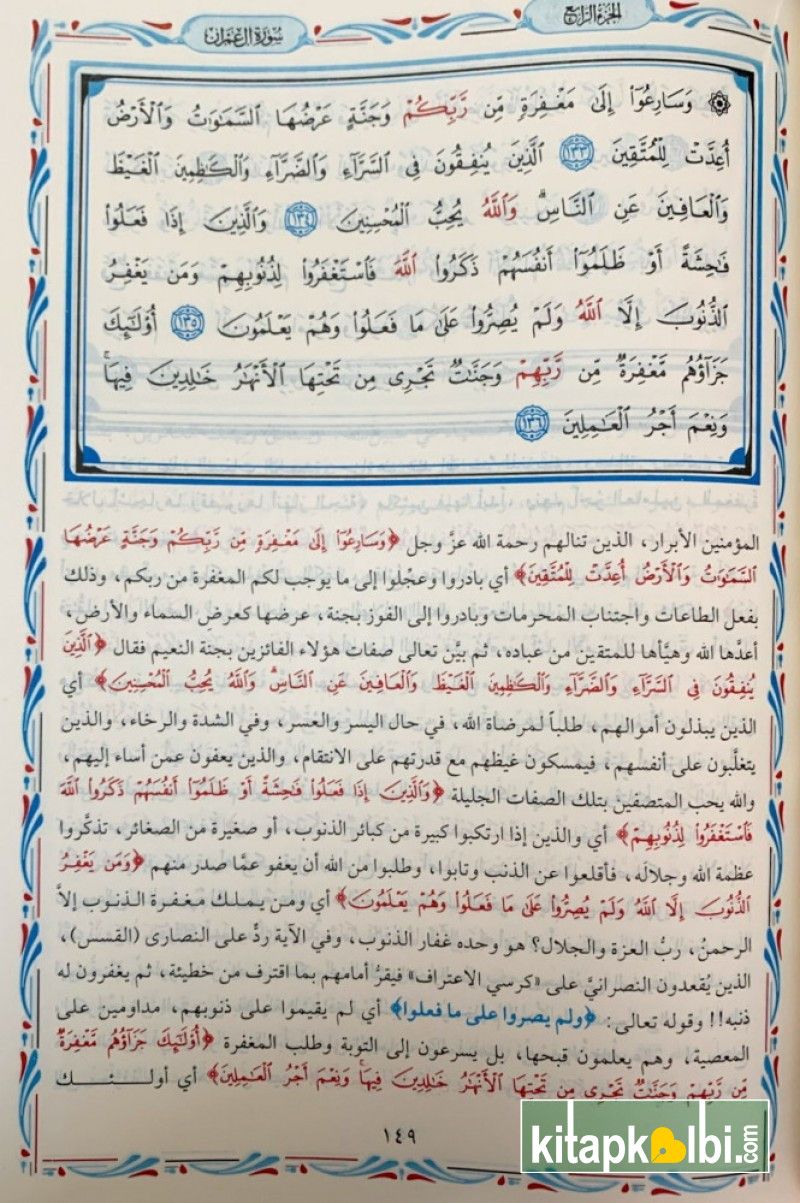 الجزء الرابع
سورة آل عمران
۞ وَسَارِعُوٓا۟ إِلَىٰ مَغْفِرَةٍ مِّن رَّبِّكُمْ وَجَنَّةٍ عَرْضُهَا ٱلسَّمَـٰوَٰتُ وَٱلْأَرْضُ
أُعِدَّتْ لِلْمُتَّقِينَ ١٣٣ ٱلَّذِينَ يُنفِقُونَ فِى ٱلسَّرَّآءِ وَٱلضَّرَّآءِ وَٱلْكَـٰظِمِينَ ٱلْغَيْظَ
وَٱلْعَافِينَ عَنِ ٱلنَّاسِ ۗ وَٱللَّهُ يُحِبُّ ٱلْمُحْسِنِينَ ١٣٤ وَٱلَّذِينَ إِذَا فَعَلُوا۟
فَـٰحِشَةً أَوْ ظَلَمُوٓا۟ أَنفُسَهُمْ ذَكَرُوا۟ ٱللَّهَ فَٱسْتَغْفَرُوا۟ لِذُنُوبِهِمْ وَمَن يَغْفِرُ
ٱلذُّنُوبَ إِلَّا ٱللَّهُ وَلَمْ يُصِرُّوا۟ عَلَىٰ مَا فَعَلُوا۟ وَهُمْ يَعْلَمُونَ ١٣٥ أُو۟لَـٰٓئِكَ
جَزَآؤُهُم مَّغْفِرَةٌ مِّن رَّبِّهِمْ وَجَنَّـٰتٌ تَجْرِى مِن تَحْتِهَا ٱلْأَنْهَـٰرُ خَـٰلِدِينَ فِيهَا ۚ
وَنِعْمَ أَجْرُ ٱلْعَـٰمِلِينَ ١٣٦
المؤمنين الأبرار، الذين تنالهم رحمة الله عزّ وجل ﴿وَسَارِعُوٓا۟ إِلَىٰ مَغْفِرَةٍ مِّن رَّبِّكُمْ وَجَنَّةٍ عَرْضُهَا
ٱلسَّمَـٰوَٰتُ وَٱلْأَرْضُ أُعِدَّتْ لِلْمُتَّقِينَ﴾ أي بادروا وعجّلوا إلى ما يوجب لكم المغفرة من ربكم، وذلك
بفعل الطاعات واجتناب المحرمات وبادروا إلى الفوز بجنة، عرضها كعرض السماء والأرض،
أعدَّها الله وهيأها للمتقين من عباده، ثم بيَّن تعالى صفات هؤلاء الفائزين بجنة النعيم فقال ﴿ٱلَّذِينَ
يُنفِقُونَ فِى ٱلسَّرَّآءِ وَٱلضَّرَّآءِ وَٱلْكَـٰظِمِينَ ٱلْغَيْظَ وَٱلْعَافِينَ عَنِ ٱلنَّاسِ ۗ وَٱللَّهُ يُحِبُّ ٱلْمُحْسِنِينَ﴾ أي
الذين يبذلون أموالهم، طلباً لمرضاة الله، في حال اليسر والعسر، وفي الشدة والرخاء، والذين
يتغلَّبون على أنفسهم، فيمسكون غيظهم مع قدرتهم على الانتقام، والذين يعفون عمن أساء إليهم،
والله يحب المتصفين بتلك الصفات الجليلة ﴿وَٱلَّذِينَ إِذَا فَعَلُوا۟ فَـٰحِشَةً أَوْ ظَلَمُوٓا۟ أَنفُسَهُمْ ذَكَرُوا۟ ٱللَّهَ
فَٱسْتَغْفَرُوا۟ لِذُنُوبِهِمْ﴾ أي والذين إذا ارتكبوا كبيرة من كبائر الذنوب، أو صغيرة من الصغائر، تذكَّروا
عظمة الله وجلالَه، فأقلعوا عن الذنب وتابوا، وطلبوا من الله أن يعفو عمَّا صدر منهم ﴿وَمَن يَغْفِرُ
ٱلذُّنُوبَ إِلَّا ٱللَّهُ وَلَمْ يُصِرُّوا۟ عَلَىٰ مَا فَعَلُوا۟ وَهُمْ يَعْلَمُونَ﴾ أي ومن يملك مغفرة الذنوب إلاَّ
الرحمنُ، ربُّ العزة والجلال؟ هو وحده غفار الذنوب، وفي الآية ردٌّ على النصارى (القسس)،
الذين يُقعدون النصرانيَّ على «كرسي الاعتراف» فيقرُّ أمامهم بما اقترف من خطيئة، ثم يغفرون له
ذنبه!! وقوله تعالى: ﴿ولم يصروا على ما فعلوا﴾ أي لم يقيموا على ذنوبهم، مداومين على
المعصية، وهم يعلمون قبحها، بل يسرعون إلى التوبة وطلب المغفرة ﴿أُو۟لَـٰٓئِكَ جَزَآؤُهُم مَّغْفِرَةٌ
مِّن رَّبِّهِمْ وَجَنَّـٰتٌ تَجْرِى مِن تَحْتِهَا ٱلْأَنْهَـٰرُ خَـٰلِدِينَ فِيهَا ۚ وَنِعْمَ أَجْرُ ٱلْعَـٰمِلِينَ﴾ أي أولـئـك
١٤٩
kitapkalbi.com